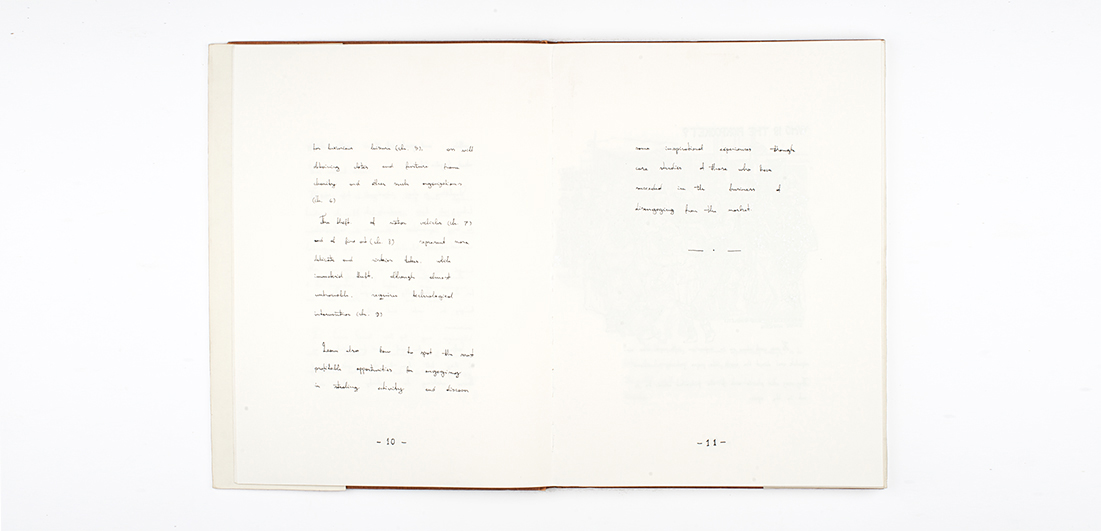 for luxurious leisure (ch. 5), as will
obtaining clothes and furniture from
charity and other such organizations
(ch. 6)
The theft of motor vehicles (ch. 7)
and of fine art (ch. 8) represent more
delicate and riskier tasks, while
immaterial theft, although almost
untraceable, requires technological
intermediaries (ch. 9)
Learn also how to spot the most
profitable opportunities for engaging
in stealing activity and discover
- 10 -
some inspirational experiences through
case studies of those who have
succeeded in the business of
disengaging from the market
- 11 -